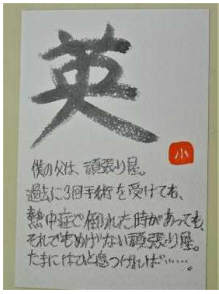 英
小
僕の父は、頑張り屋。
過去に3回手術を受けても、
熱中症で倒れた時があっても、
それでもめげない頑張り屋。
たまにはひと息つければ……。